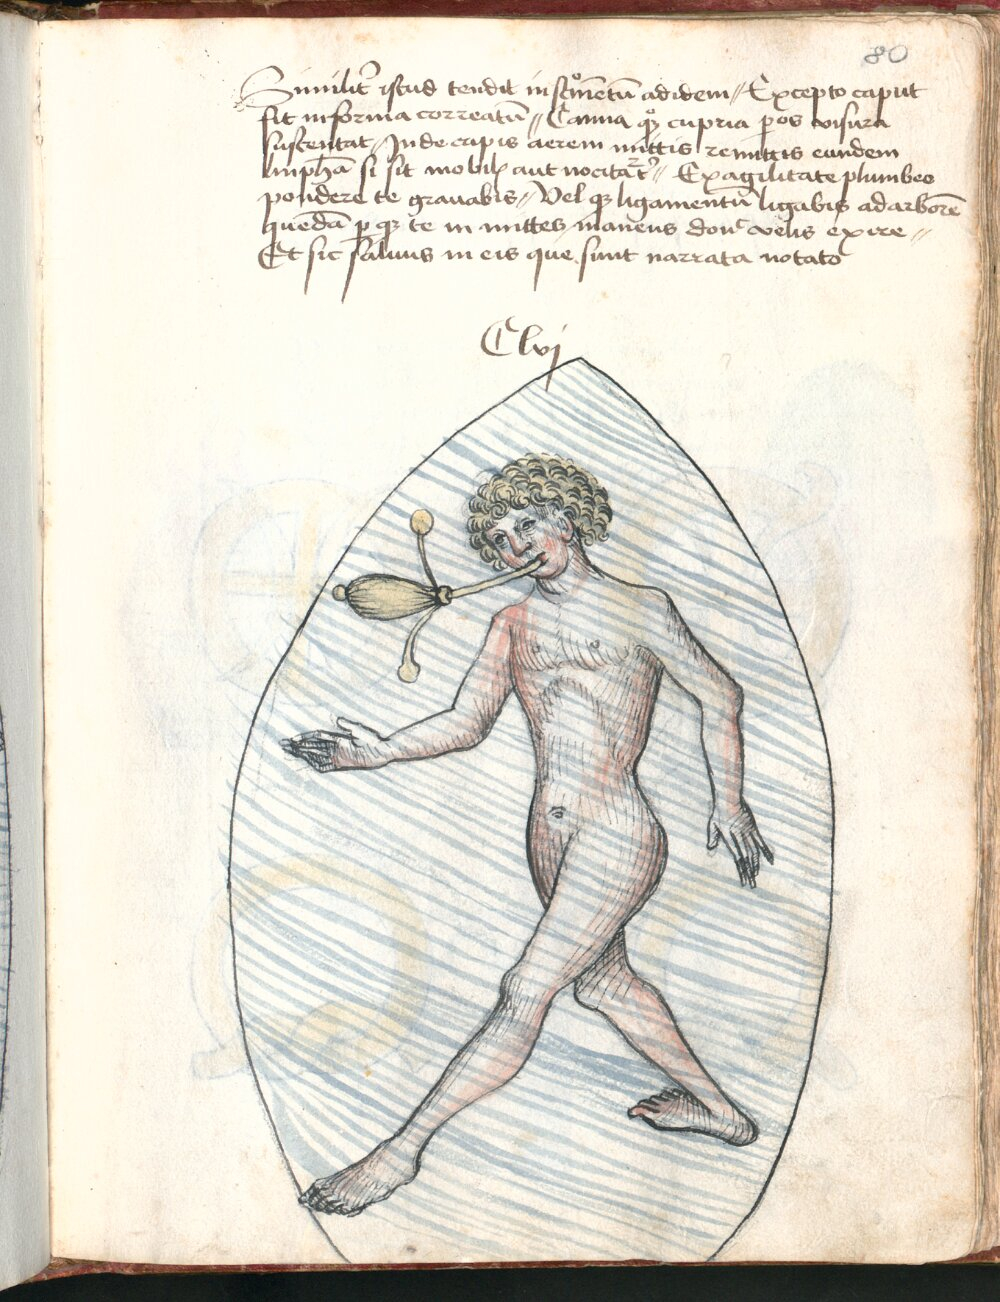 80
Similit' istud tendit in sc'metu adidem // Excepto caput
sit in forma correatu // Canna q; cupria p os visura
sustentat / Inde capis aerem mittis remittis eundem
limpha si sit mobil' aut nocitat' // Exagilitate plumbeo
pondere te gravabis // Vel q; ligamentu ligabis ad arbore
queda p q; te in mittes manens donc velis exire //
Et sic salvus in eis que sunt narrata notato
Clvj